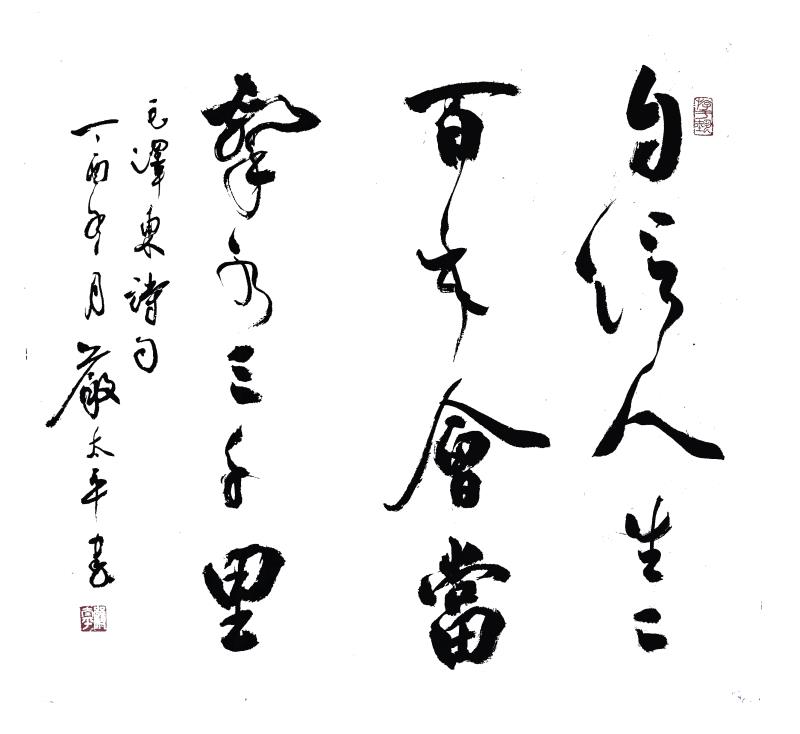 自信人生二
百年會當
擊水三千里
毛澤東詩句
丁酉月嚴太平書